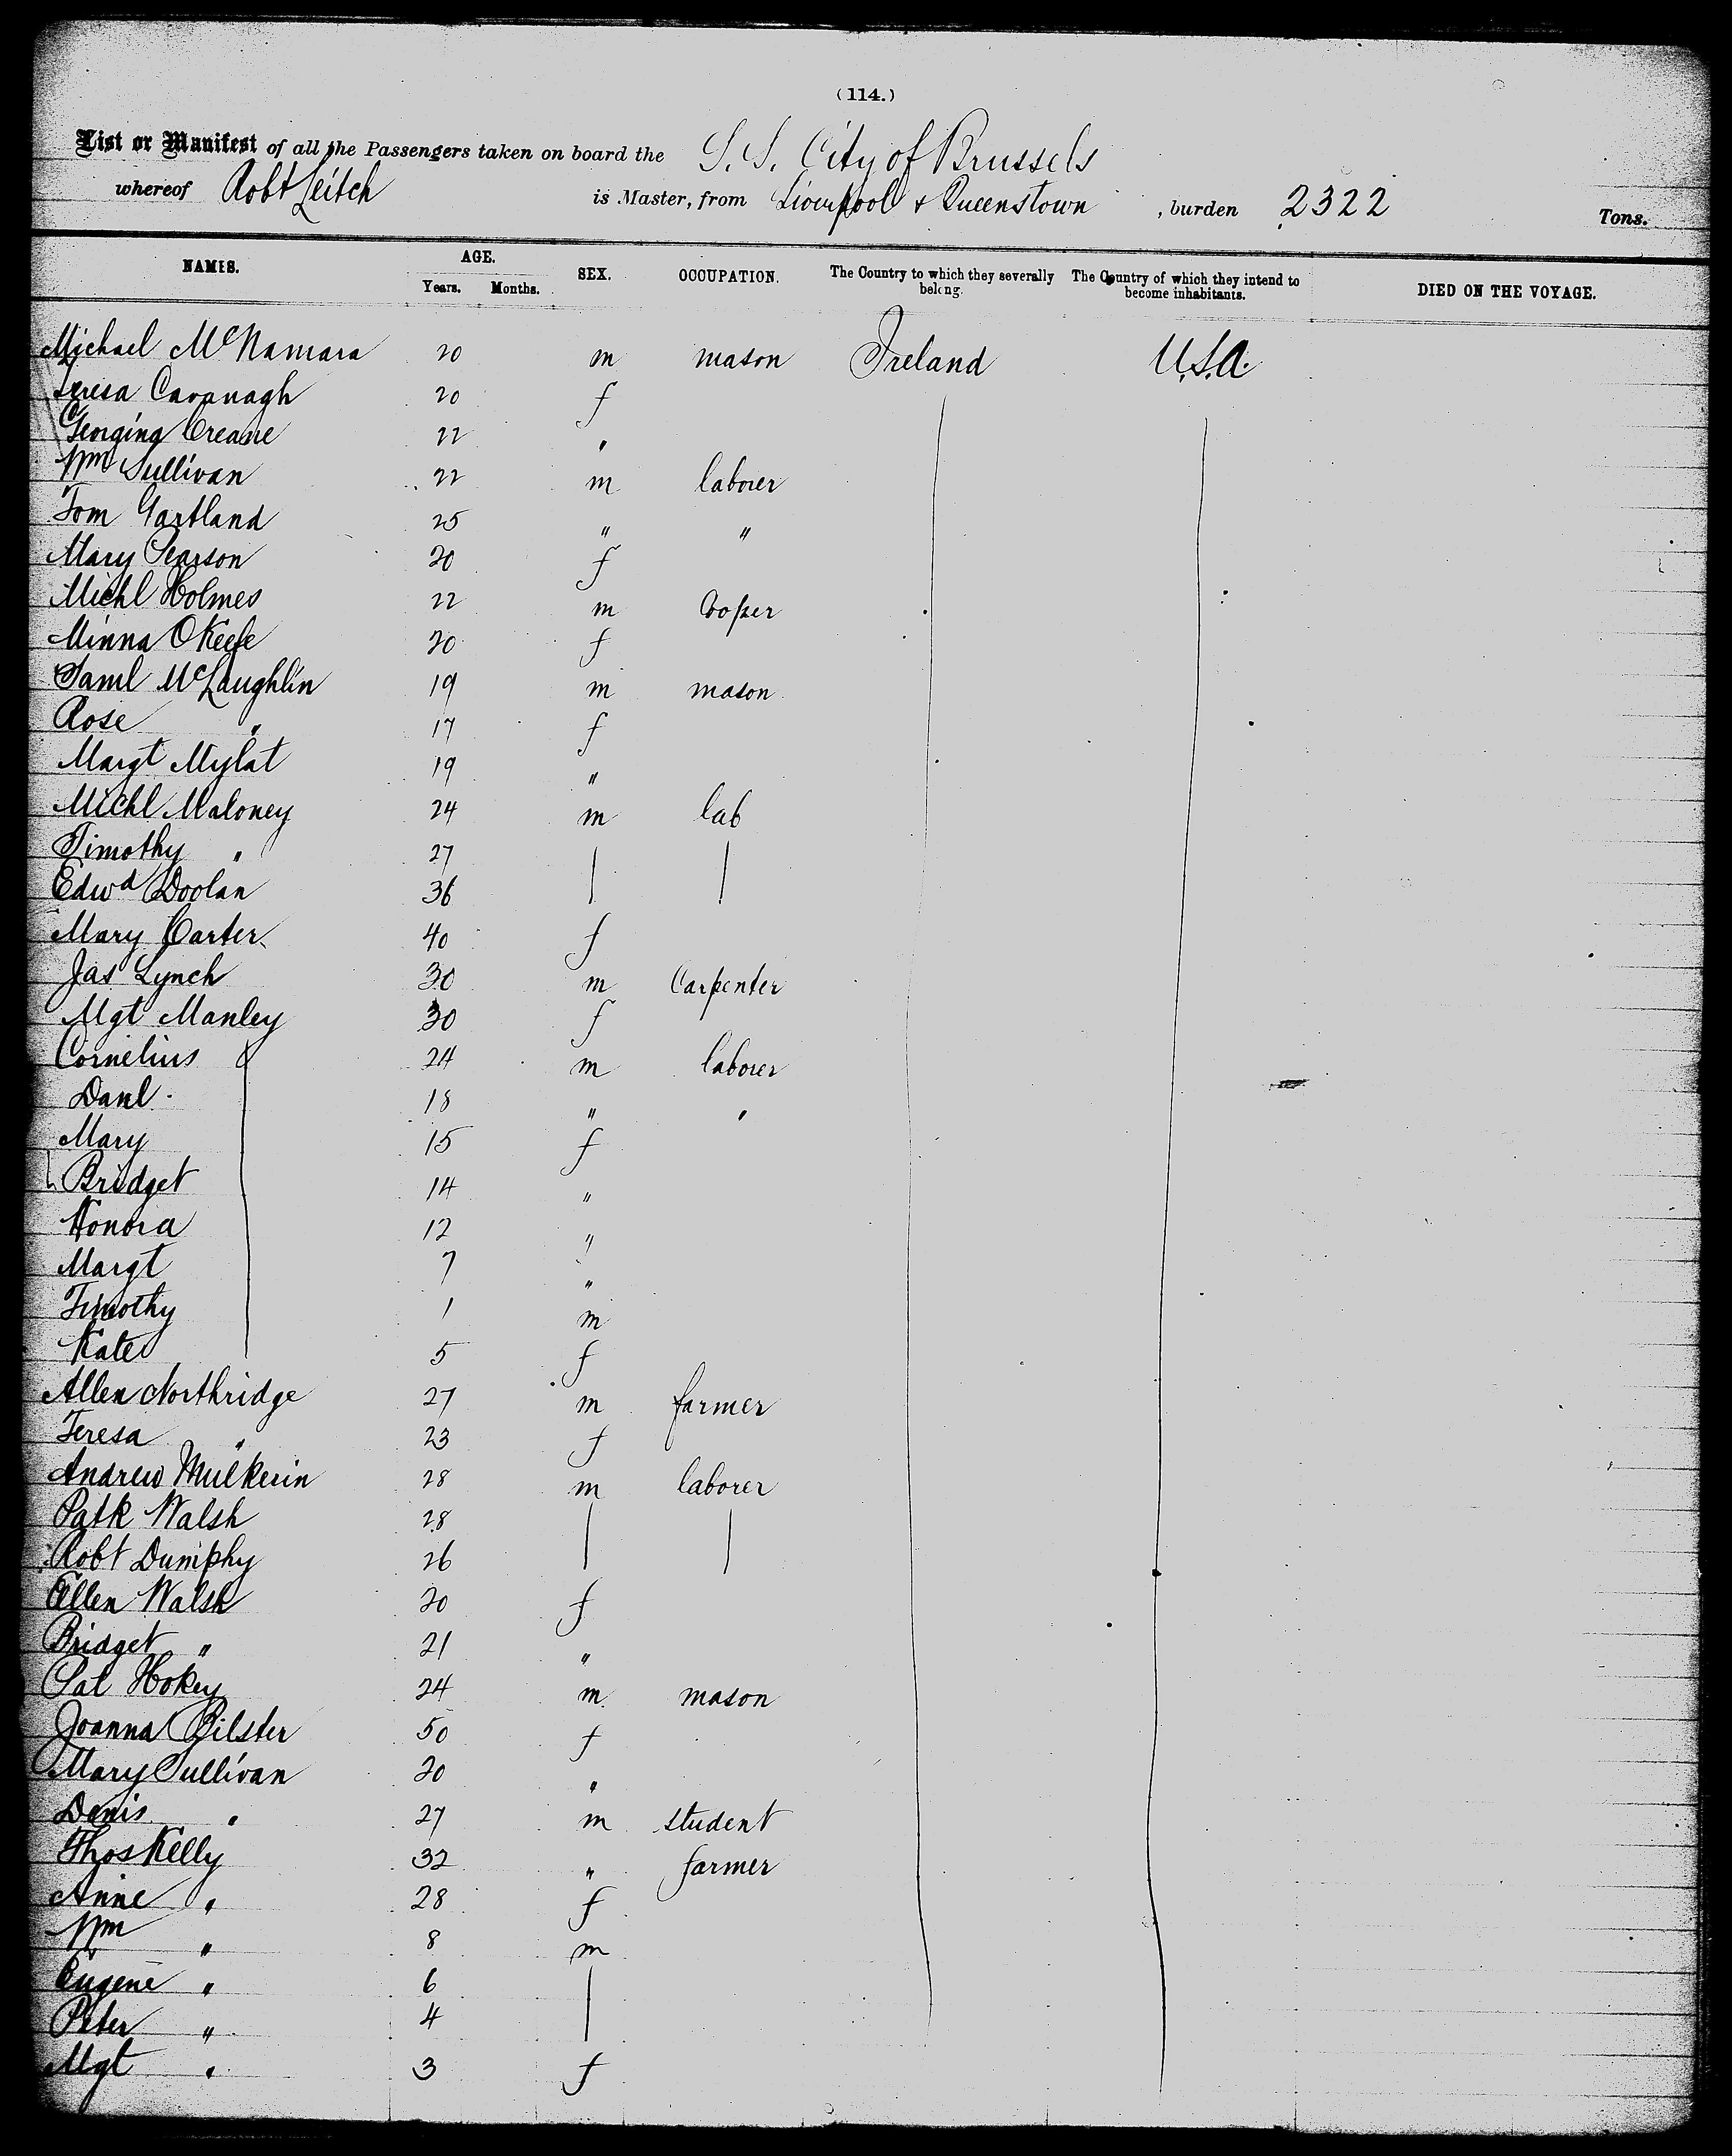 (114.)
List or Manifest of all the Passengers taken on board the S.S. City of Brussels
whereof Robt Leitch is Master, from Liverpool & Queenstown, burden 2322 Tons.
NAMES. AGE. Years. Months. SEX. OCCUPATION. The Country to which they severally belong. The Country of which they intend to become inhabitants. DIED ON THE VOYAGE.
Michael McNamara 20 m mason Ireland U.S.A.
Teresa Cavanagh 20 f
Georgina Creane 22 "
Wm Sullivan 22 m laborer
Tom Gartland 25 " "
Mary Pearson 20 f
Michl Holmes 22 m Cooper
Minna OKeefe 20 f
Saml McLaughlin 19 m mason
Rose " 17 f
Margt Mylat 19 "
Michl Maloney 24 m lab
Timothy " 27
Edwd Doolan 36
Mary Carter 40 f
Jas Lynch 30 m Carpenter
Mgt Manley 30 f
Cornelius 24 m laborer
Danl. 18 " "
Mary 15 f
Bridget 14 "
Honora 12 "
Margt 7 "
Timothy 1 m
Kate 5 f
Allen Northridge 27 m farmer
Teresa " 23 f
Andrew Mulkerin 28 m laborer
Patk Walsh 28
Robt Dumphy 26
Ellen Walsh 20 f
Bridget " 21 "
Pat Hokey 24 m mason
Joanna Bilster 50 f
Mary Sullivan 20 "
Denis " 27 m student
Thos Kelly 32 " farmer
Anne " 28 f
Wm " 8 m
Eugene " 6
Peter " 4
Mgt " 3 f